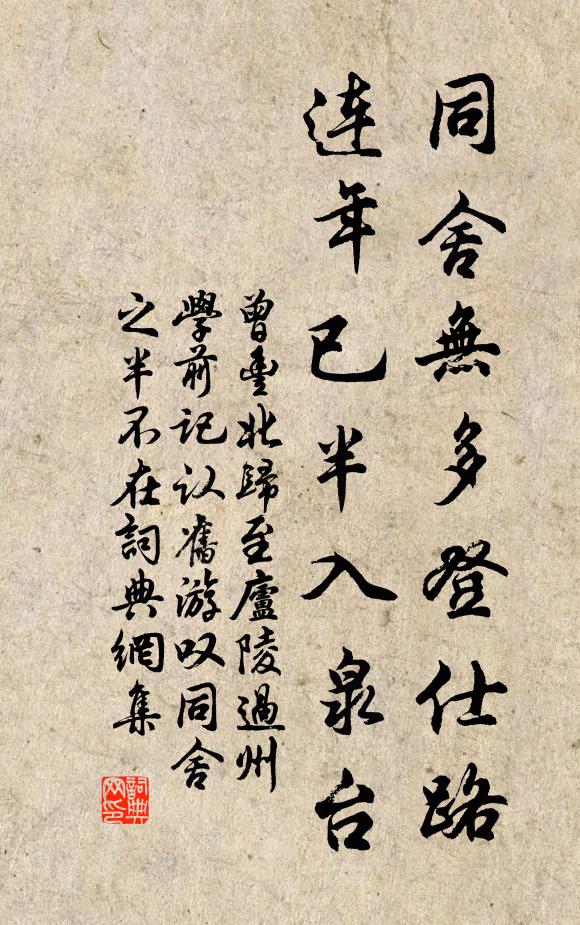 同舍無多登仕路
連年已半入泉台
曾豐北歸至廬陵過州
學前記认舊游叹同舍
之半不在詞典網集
詞典网印